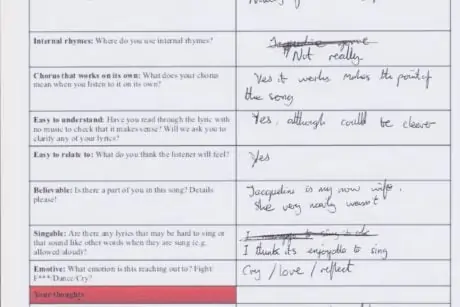 Internal rhymes: Where do you use internal rhymes?
Not really
Chorus that works on its own: What does your chorus
mean when you listen to it on its own?
Yes it works makes the point of
the song
Easy to understand: Have you read through the lyric with
no music to check that it makes sense? Will we ask you to
clarify any of your lyrics?
Yes, although could be clearer
Easy to relate to: What do you think the listener will feel?
Yes
Believable: Is there a part of you in this song? Details
please!
Jacqueline is my now wife.
She very nearly wasn't
Singable: Are there any lyrics that may be hard to sing or
that sound like other words when they are sung (e.g.
allowed aloud)?
I think its enjoyable to sing
Emotive: What emotion is this reaching out to? Fight/
F***/Dance/Cry?
Cry / love / reflect
Your thoughts